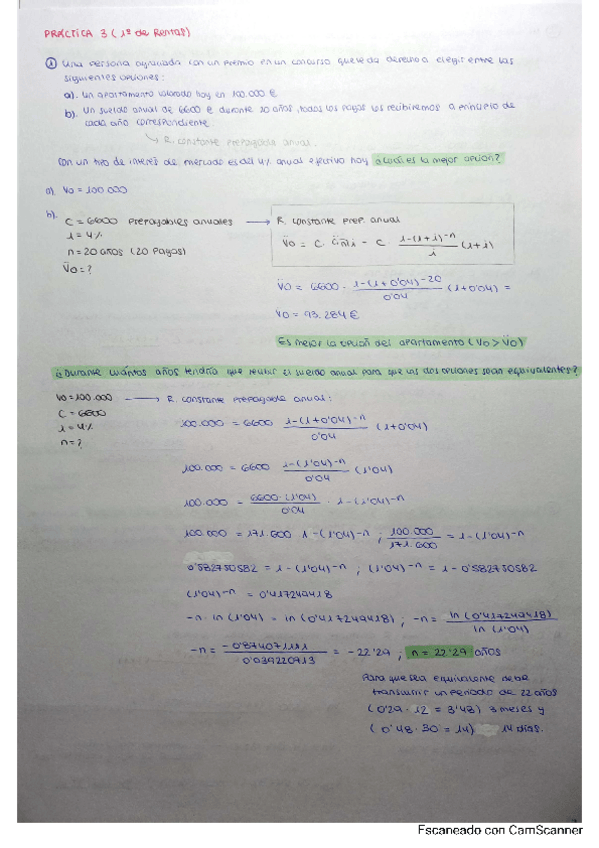 PRÁCTICA 3 (1ª de Rentas)
① Una persona agraciada con un premio en un concurso que le da derecho a elegir entre las
siguientes opciones:
a). Un apartamento valorado hoy en 100.000 €
b). Un sueldo anual de 6600 € durante 20 años, todos los pagos los recibiremos a principio de
cada año correspondiente.
↳ R. constante prepagable anual.
Con un tipo de interés de mercado es del 4% anual efectivo hoy ¿cuál es la mejor opción?
a). Vo = 100.000
b).
C = 6600 prepagables anuales → R. constante prep. anual
i = 4%
n = 20 años (20 pagos)
V̈o = ?
V̈o = C · än¬i = C · 1-(1+i)-n / i (1+i)
V̈o = 6600 · 1-(1+0'04)-20 / 0'04 (1+0'04) =
Vo = 93.284 €
Es mejor la opción del apartamento (Vo > V̈o)
¿Durante cuántos años tendría que recibir el sueldo anual para que las dos opciones sean equivalentes?
Vo = 100.000 → R. constante prepagable anual:
C = 6600
i = 4%
n = ?
100.000 = 6600 1-(1+0'04)-n / 0'04 (1+0'04)
100.000 = 6600 1-(1'04)-n / 0'04 (1'04)
100.000 = 6600·(1'04) / 0'04 · 1-(1'04)-n
100.000 = 171.600 1-(1'04)-n ; 100.000 / 171.600 = 1-(1'04)-n
0'582750582 = 1-(1'04)-n ; (1'04)-n = 1-0'582750582
(1'04)-n = 0'417249418
-n · ln (1'04) = ln (0'417249418) ; -n = ln (0'417249418) / ln (1'04)
-n = -0'874071111 / 0'039220713 = -22'29 ; n = 22'29 años
Para que sea equivalente debe
transcurrir un periodo de 22 años
(0'29 · 12 = 3'48) 3 meses y
(0'48 · 30 = 14) 14 días.
Escaneado con CamScanner